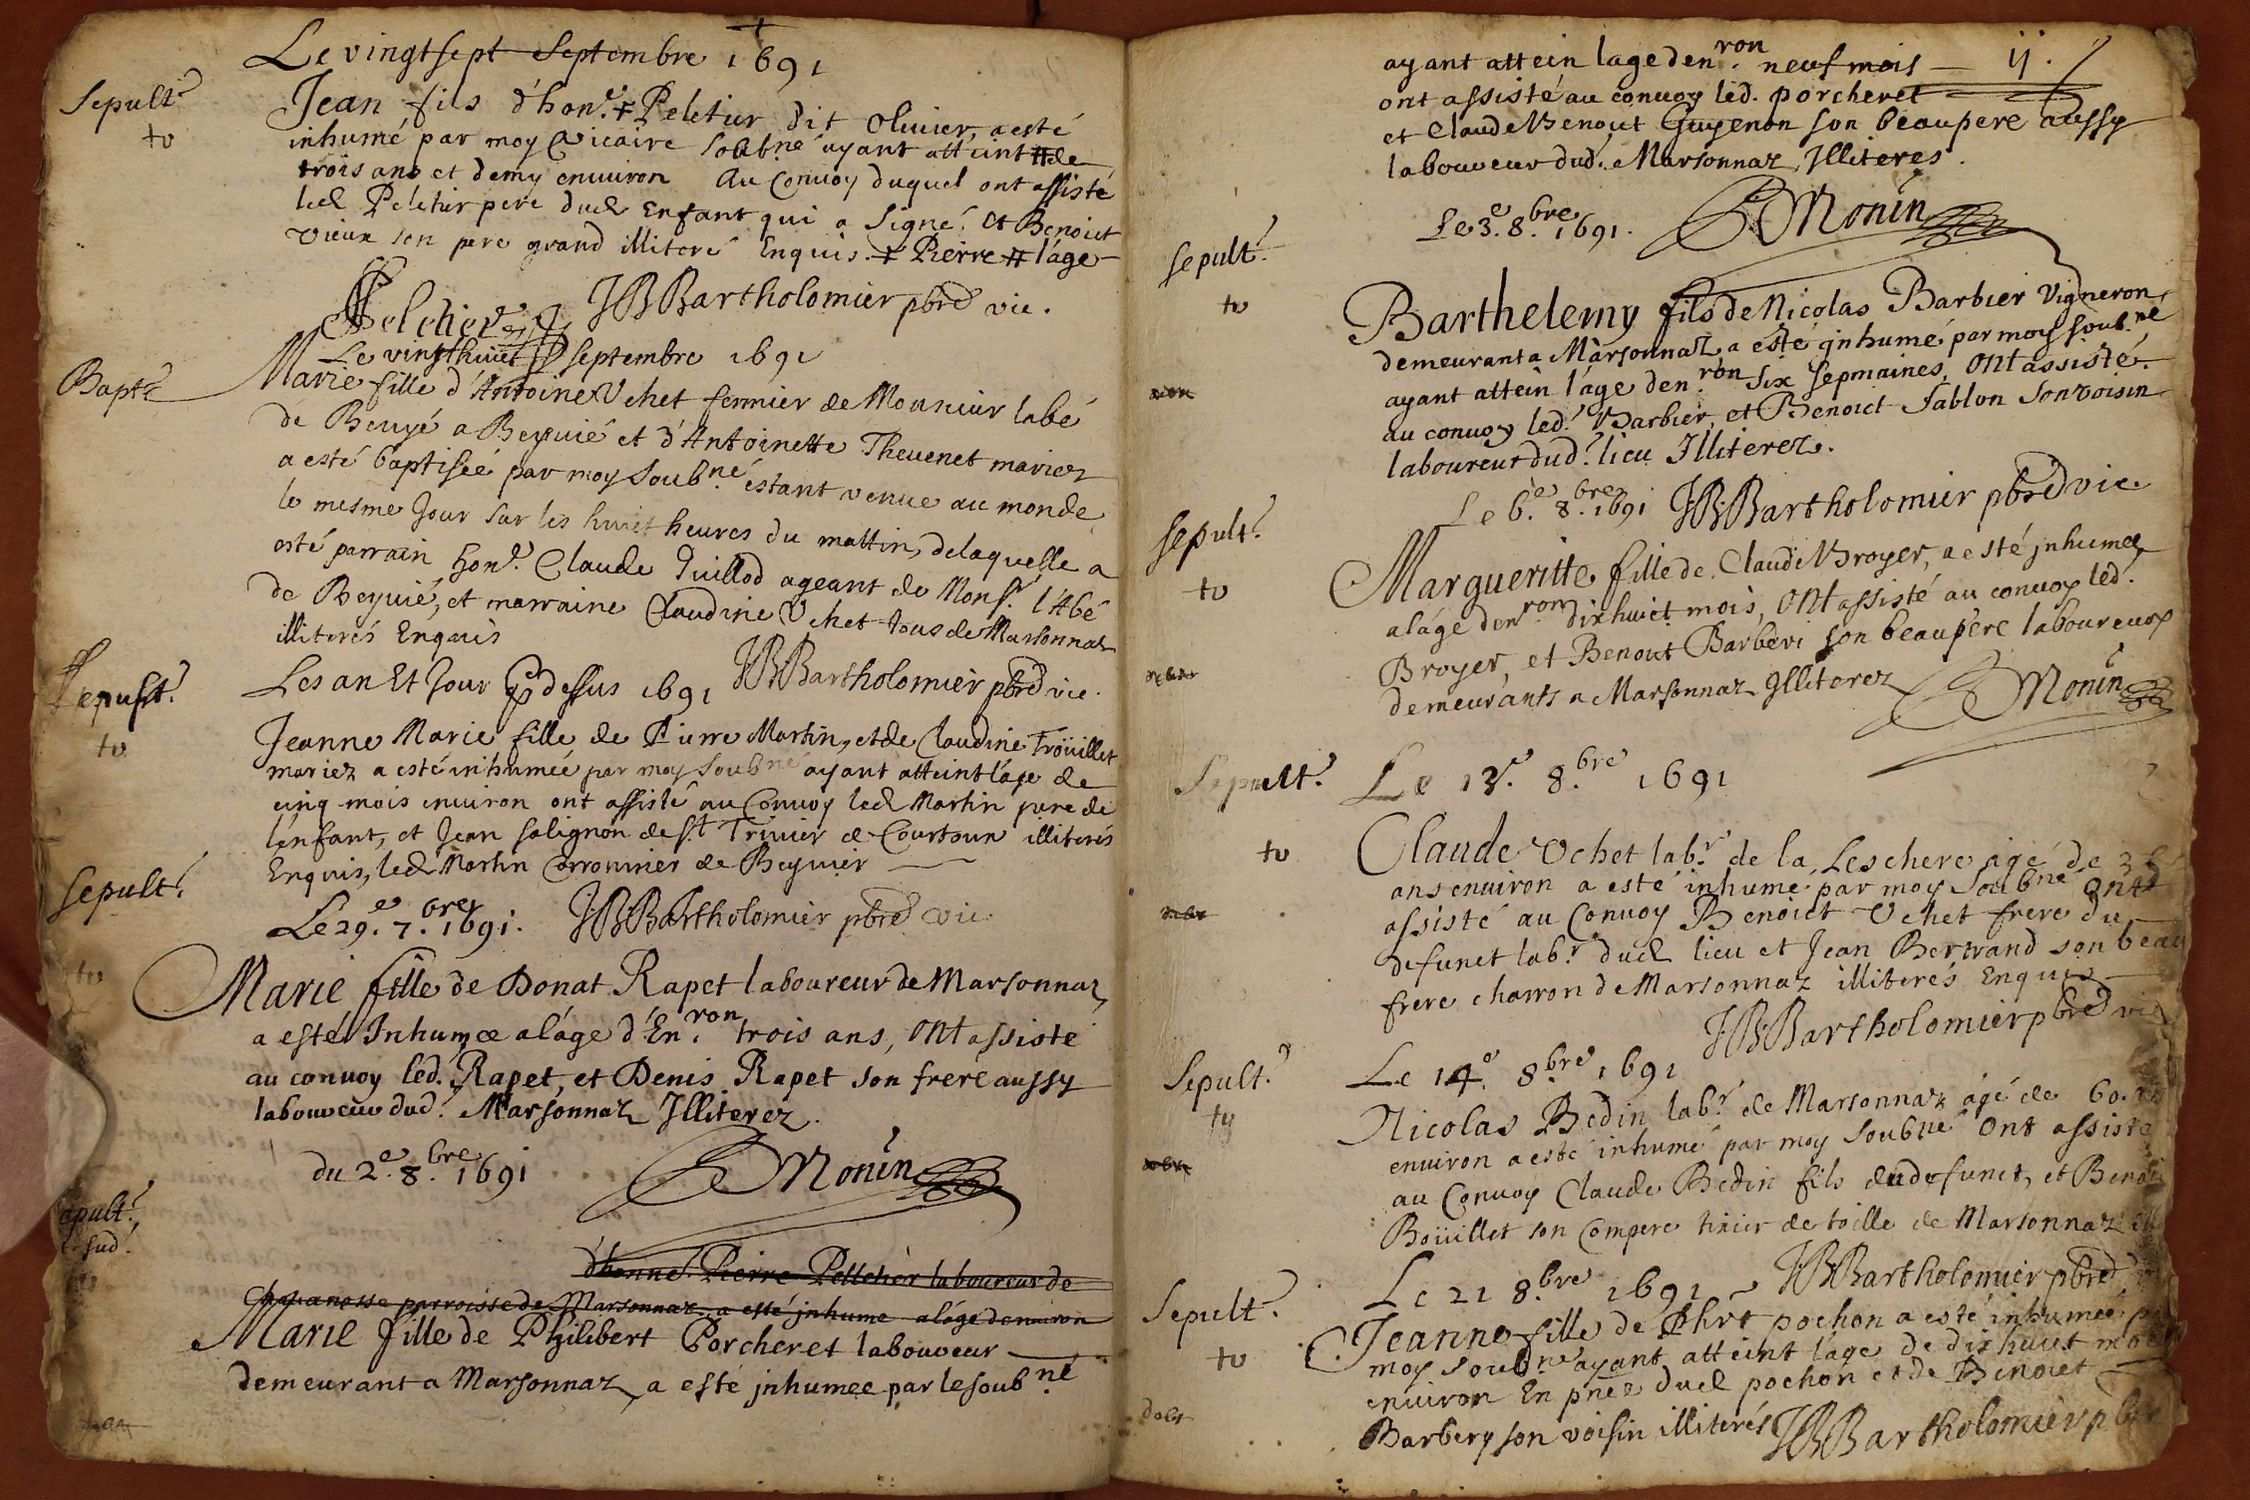 Le vingtsept Septembre 1691
Sepult.e
to
Jean fils d'hon.e ⨡ Peletier dit Olivier, a esté
inhumé par moy Vicaire Soubné ayant atteint # de
trois ans et demy environ Au Convoy duquel ont assisté
led Peletier pere dud Enfant qui a Signé, Et Benoict
vieux son pere grand illiteré Enquis. ⨡ Pierre # l'age
Pelchier JBBartholomier pbre vic.
Bapt.e
Le vingthuiet septembre 1691
Marie fille d'Antoine Vchet fermier de Monsieur labé
de Beyvié a Beyvié et d'Antoinette Thevenet mariez
a esté baptisée par moy Soubné éstant venue au monde
le mesme Jour sur les huict heures du mattin, delaquelle a
esté parrain hon.e Claude Guillod ageant de Mons.r l'Abé
de Beyvié, et marraine Claudine Vchet tous de Marsonnaz
illiterés Enquis
JBBartholomier pbre vic.
Sepult.e
to
Les an Et Jour cy dessus 1691
Jeanne Marie fille de Pierre Martin, et de Claudine Troüillet
mariez a esté inhumée par moy Soubné ayant atteint l'age de
cinq mois environ ont assisté au Convoy led Martin pere de
lénfant, et Jean Salignon de S.t Trivier de Courtoux illiterés
Enquis, led Martin de Beyvier
JBBartholomier pbre vic.
Sepult.e
to
Le 29.e 7.bre 1691.
Marie fille de Donat Rapet laboureur de Marsonnaz,
a esté Inhumée a láge d'En.ron trois ans, ont assisté
au convoy led. Rapet, et Denis Rapet son frere aussy
laboureur dud. Marsonnaz Illiterez.
Monin
du 2.e 8.bre 1691
sepult.e
d'honne. Pierre Pelletier laboureur de
parroisse de Marsonnaz a esté jnhume a láge denviron
Marie fille de Philibert Porcheret laboureur
demeurant a Marsonnaz, a esté jnhumee par le soubné
ayant attein lage den.ron neuf mois — ij.
ont assisté au convoy led. porcheret
et Claude Benoict Guyenon son beaupere aussy
laboureur dud. Marsonnaz, Illiteres.
Monin
Le 3.e 8.bre 1691.
sepult.e
to
Barthelemy fils de Nicolas Barbier Vigneron,
demeurant a Marsonnaz, a esté jnhumé par moy soub.né
ayant attein láge den.ron six sepmaines, ont assisté
au convoy led. Barbier, et Benoict Sablon son voisin
laboureur dud. lieu Illiterez.
JBBartholomier pbre vic.
Le 6.e 8.bre 1691
sepult.e
to
Margueritte fille de Claude Broyer, a esté jnhumee
a láge den.ron dixhuict mois, ont assisté au convoy led.
Broyer, et Benoict Barberi son beaupere laboureurs
demeurants a Marsonnaz Illiterez
Monin
Sepult.e
to
Le 13.e 8.bre 1691
Claude Vchet lab.r de la Leschere agé de
ans environ a esté inhumé par moy Soubné ont
assisté au Convoy Benoict Vchet frere du
defunct lab.r dud lieu et Jean Bertrand son beau
frere charron de Marsonnaz illiterés Enquis
JBBartholomier pbre vic
Sepult.e
to
Le 14.e 8.bre 1691
Nicolas Bedin lab.r de Marsonnaz ágé de 60.
environ a esté inhumé par moy Soubné Ont assisté
au Convoy Claude Bedin fils du defunct, et Benoict
Boüillet son Compere tixier de toille de Marsonnaz
JBBartholomier pbre
Sepult.e
to
Le 21 8.bre 1691
Jeanne fille de Phrt pochon a esté inhumeé par
moy Soubné ayant atteint láge de dixhuict mois
environ En pñce dud pochon et de Benoict
Barbery son voisin illiterés JBBartholomier pbre